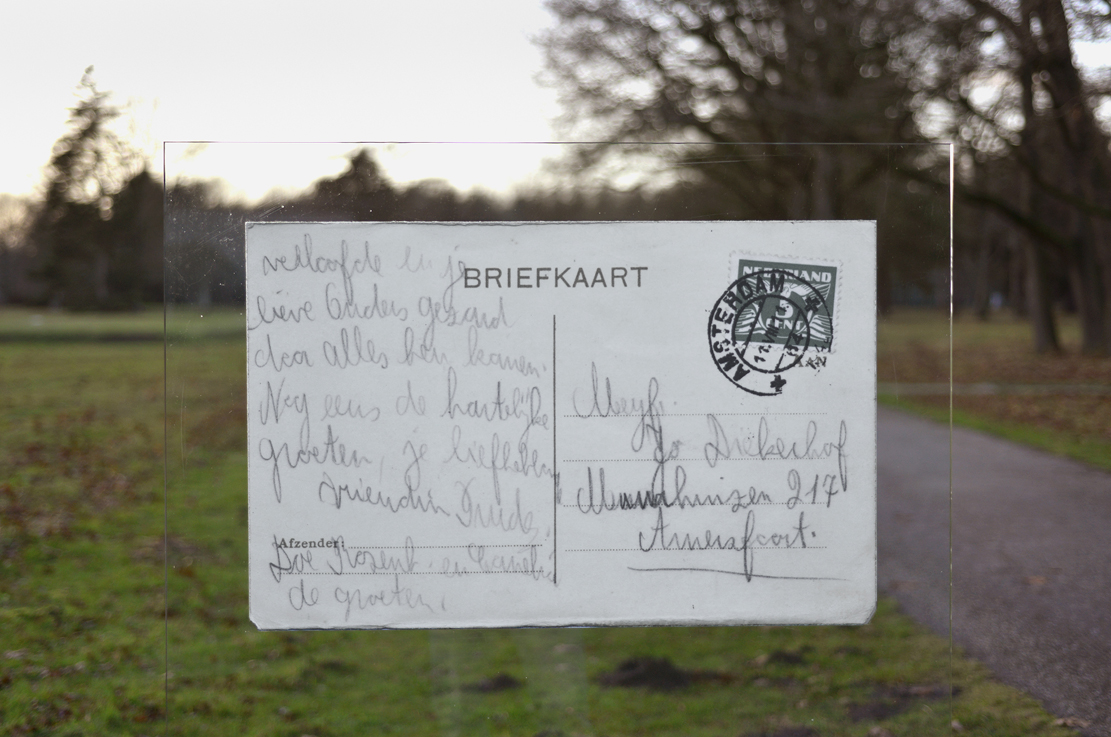 verloofde en je
lieve Ouders gezond
door alles heen komen.
Nog eens de hartelijke
groeten, je liefhebben
vriendin Trude
Afzender:
Doe Rozent. en
de groeten,
BRIEFKAART
NEDERLAND
5
CENT
AMSTERDAM
Mejf.
Jo Diekerhof
217
Amersfoort.